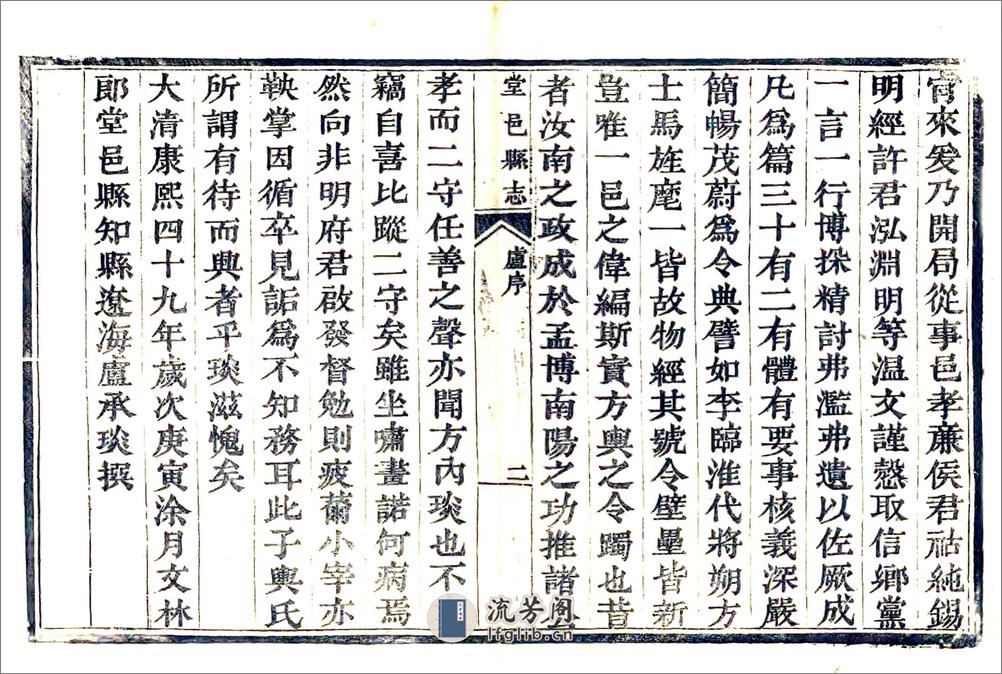 甯來爰乃開局從事邑孝亷侯君祜純錫
明經許君泓淵明等溫文謹慤取信鄉黨
一言一行博採精討弗濫弗遺以佐厥成
凡爲篇三十有二有體有要事核義深嚴
簡暢茂蔚爲令典譬如李臨淮代將朔方
士馬旌麾一皆故物經其號令壁壘皆新
豈唯一邑之偉編斯實方輿之令躅也昔
者汝南之政成於孟博南陽之功推諸公
堂邑縣志 盧序 二
孝而二守任善之聲亦聞方內琰也不
竊自喜比蹤二守矣雖坐嘯畫諾何病焉
然向非明府君啟發督勉則疲薾小宰亦
鞅掌因循卒見詬爲不知務耳此子輿氏
所謂有待而興者乎琰滋愧矣
大清康熙四十九年歲次庚寅涂月文林
郎堂邑縣知縣遼海盧承琰撰
流芳阁
lfglib.cn